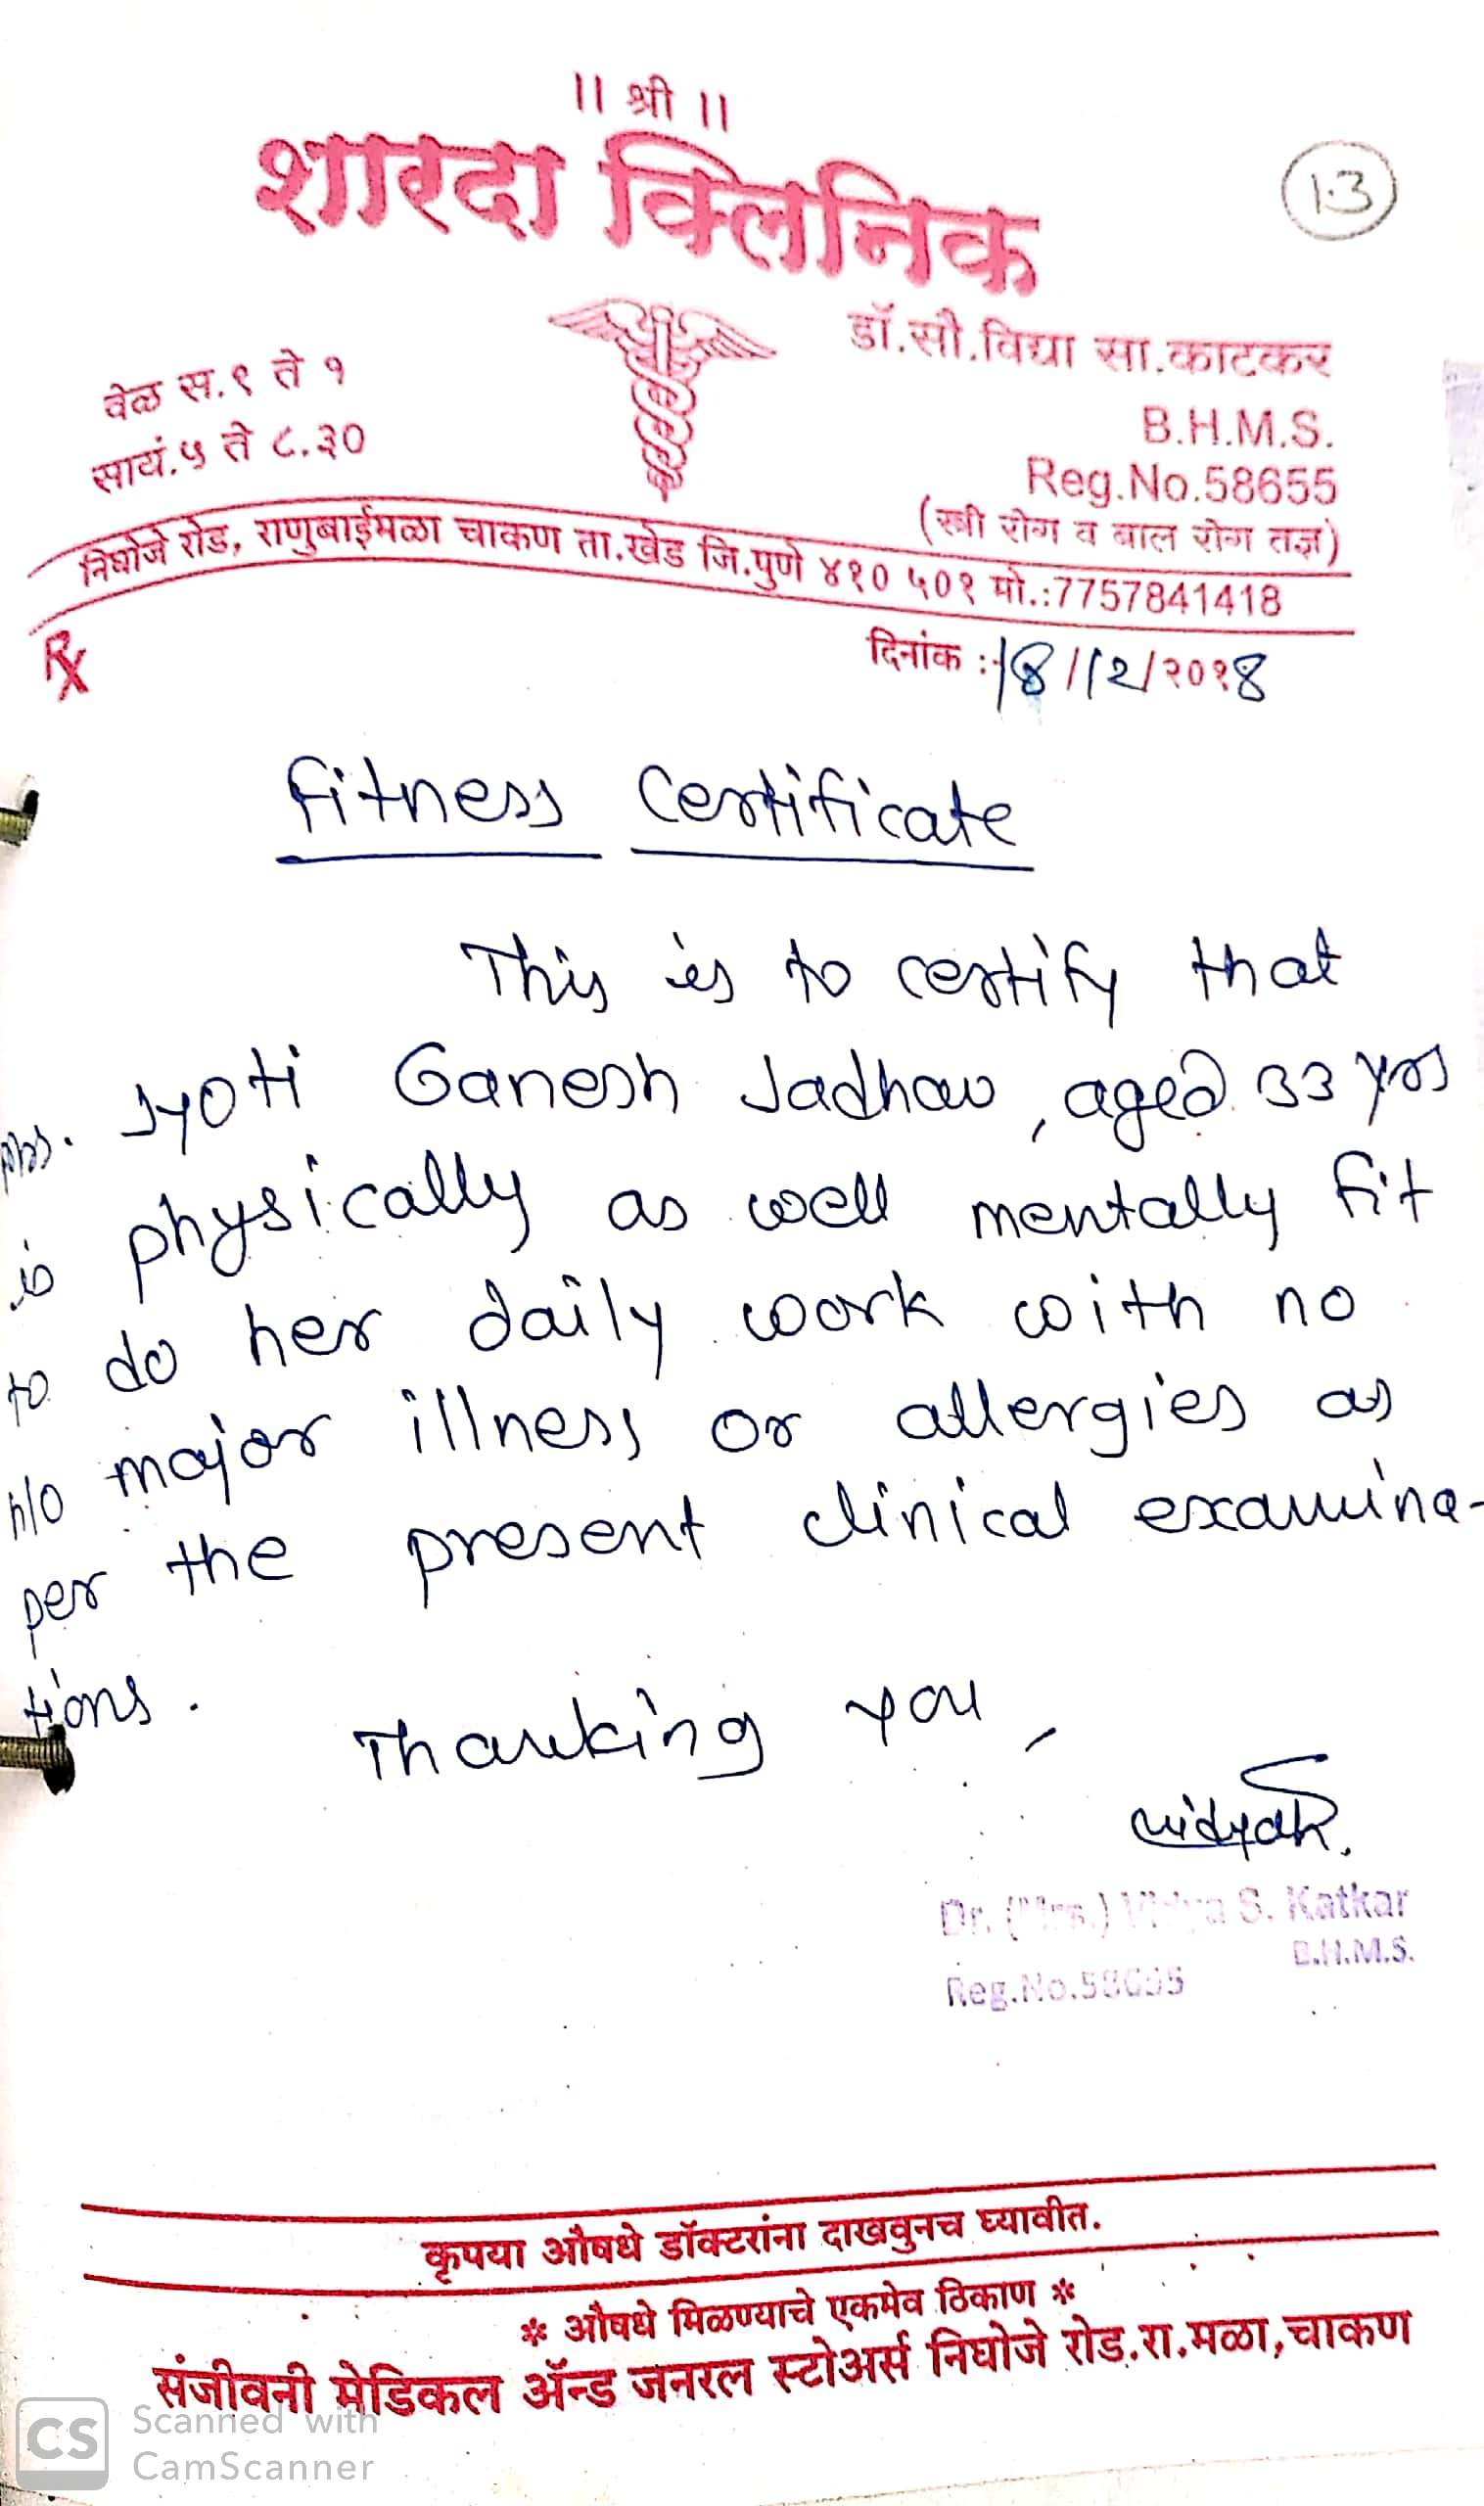 || श्री ||
शारदा क्लिनिक
13
वेळ स.९ ते १
सायं.५ ते ८.३०
डॉ.सौ.विद्या सा.काटकर
B.H.M.S.
Reg.No.58655
(स्त्री रोग व बाल रोग तज्ञ)
निघोजे रोड, राणुबाईमळा चाकण ता.खेड जि.पुणे ४१० ५०१ मो.:7757841418
Rx
दिनांक :- 18/12/२०१8
Fitness Certificate
This is to certify that
Mrs. Jyoti Ganesh Jadhav, aged 33 yrs
is physically as well mentally fit
to do her daily work with no
h/o major illness or allergies as
per the present clinical examina-
tions.
Thanking you,
VidyaK.
Dr. (Mrs.) Vidya S. Katkar
B.H.M.S.
Reg.No.58655
कृपया औषधे डॉक्टरांना दाखवुनच घ्यावीत.
* औषधे मिळण्याचे एकमेव ठिकाण *
संजीवनी मेडिकल ॲन्ड जनरल स्टोअर्स निघोजे रोड.रा.मळा,चाकण
CS Scanned with
CamScanner